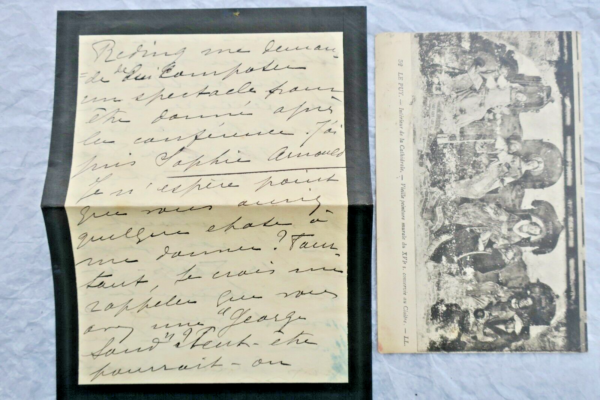 Beding me deman-
de de lui composer
un spectacle pour
être donné après
la conférence. J'ai
pris Sophie Arnould
Je n'espère point
que vous auriez
quelque chose à
me donner? Pour-
tant, Je crois me
rappeler que vous
avez une "George
Sand"? Peut-être
pourrait-on
70 LE PUY. — Intérieur de la Cathédrale. — Vieille peinture murale du XVe s. — LL.